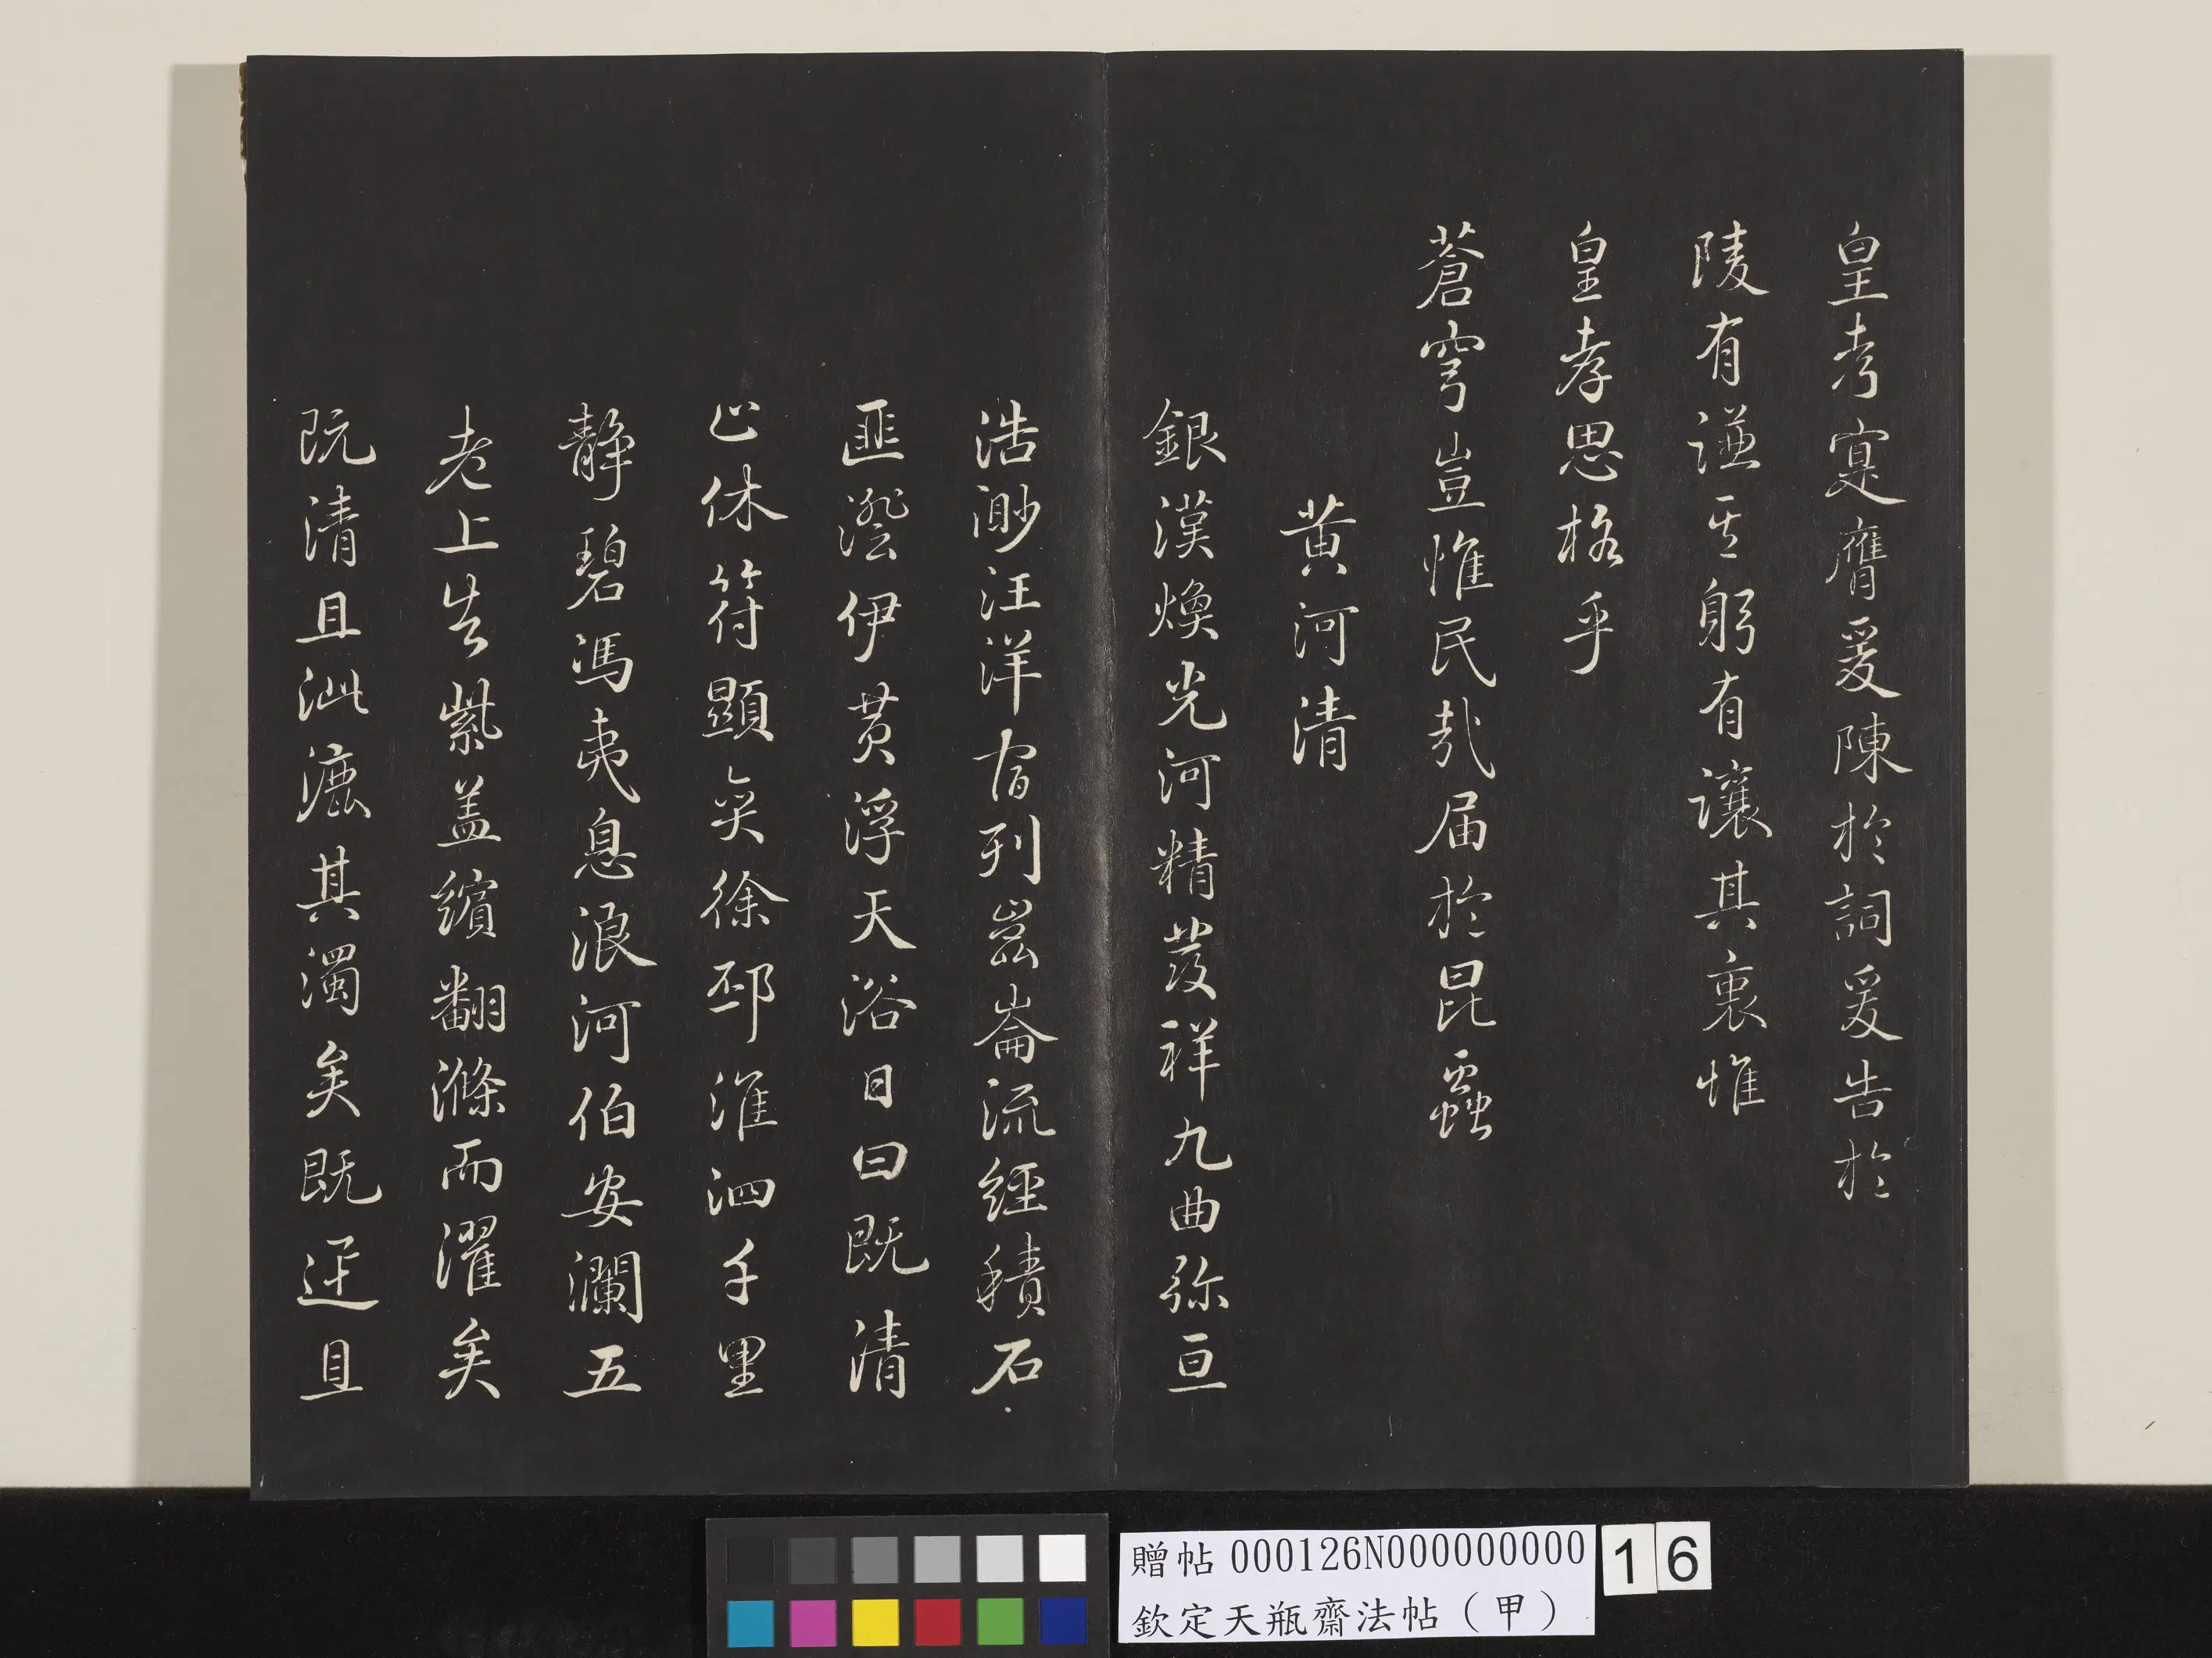 皇考寔膺爰陳於詞爰告於
陵有謙其躬有讓其衷惟
皇孝思格乎
蒼穹豈惟民哉届於昆蟲
黄河清
銀漢煥光河精發祥九曲弥亘
浩渺汪洋宿列崑崙流經積石
匪澄伊黄浮天浴日曰既清
止休符顯奕徐邳淮泗千里
静碧馮夷息浪河伯安瀾五
老上告紫盖繽翻滌而濯矣
既清且泚漉其濁矣既平且
贈帖 000126N000000000
欽定天瓶齋法帖（甲）
16